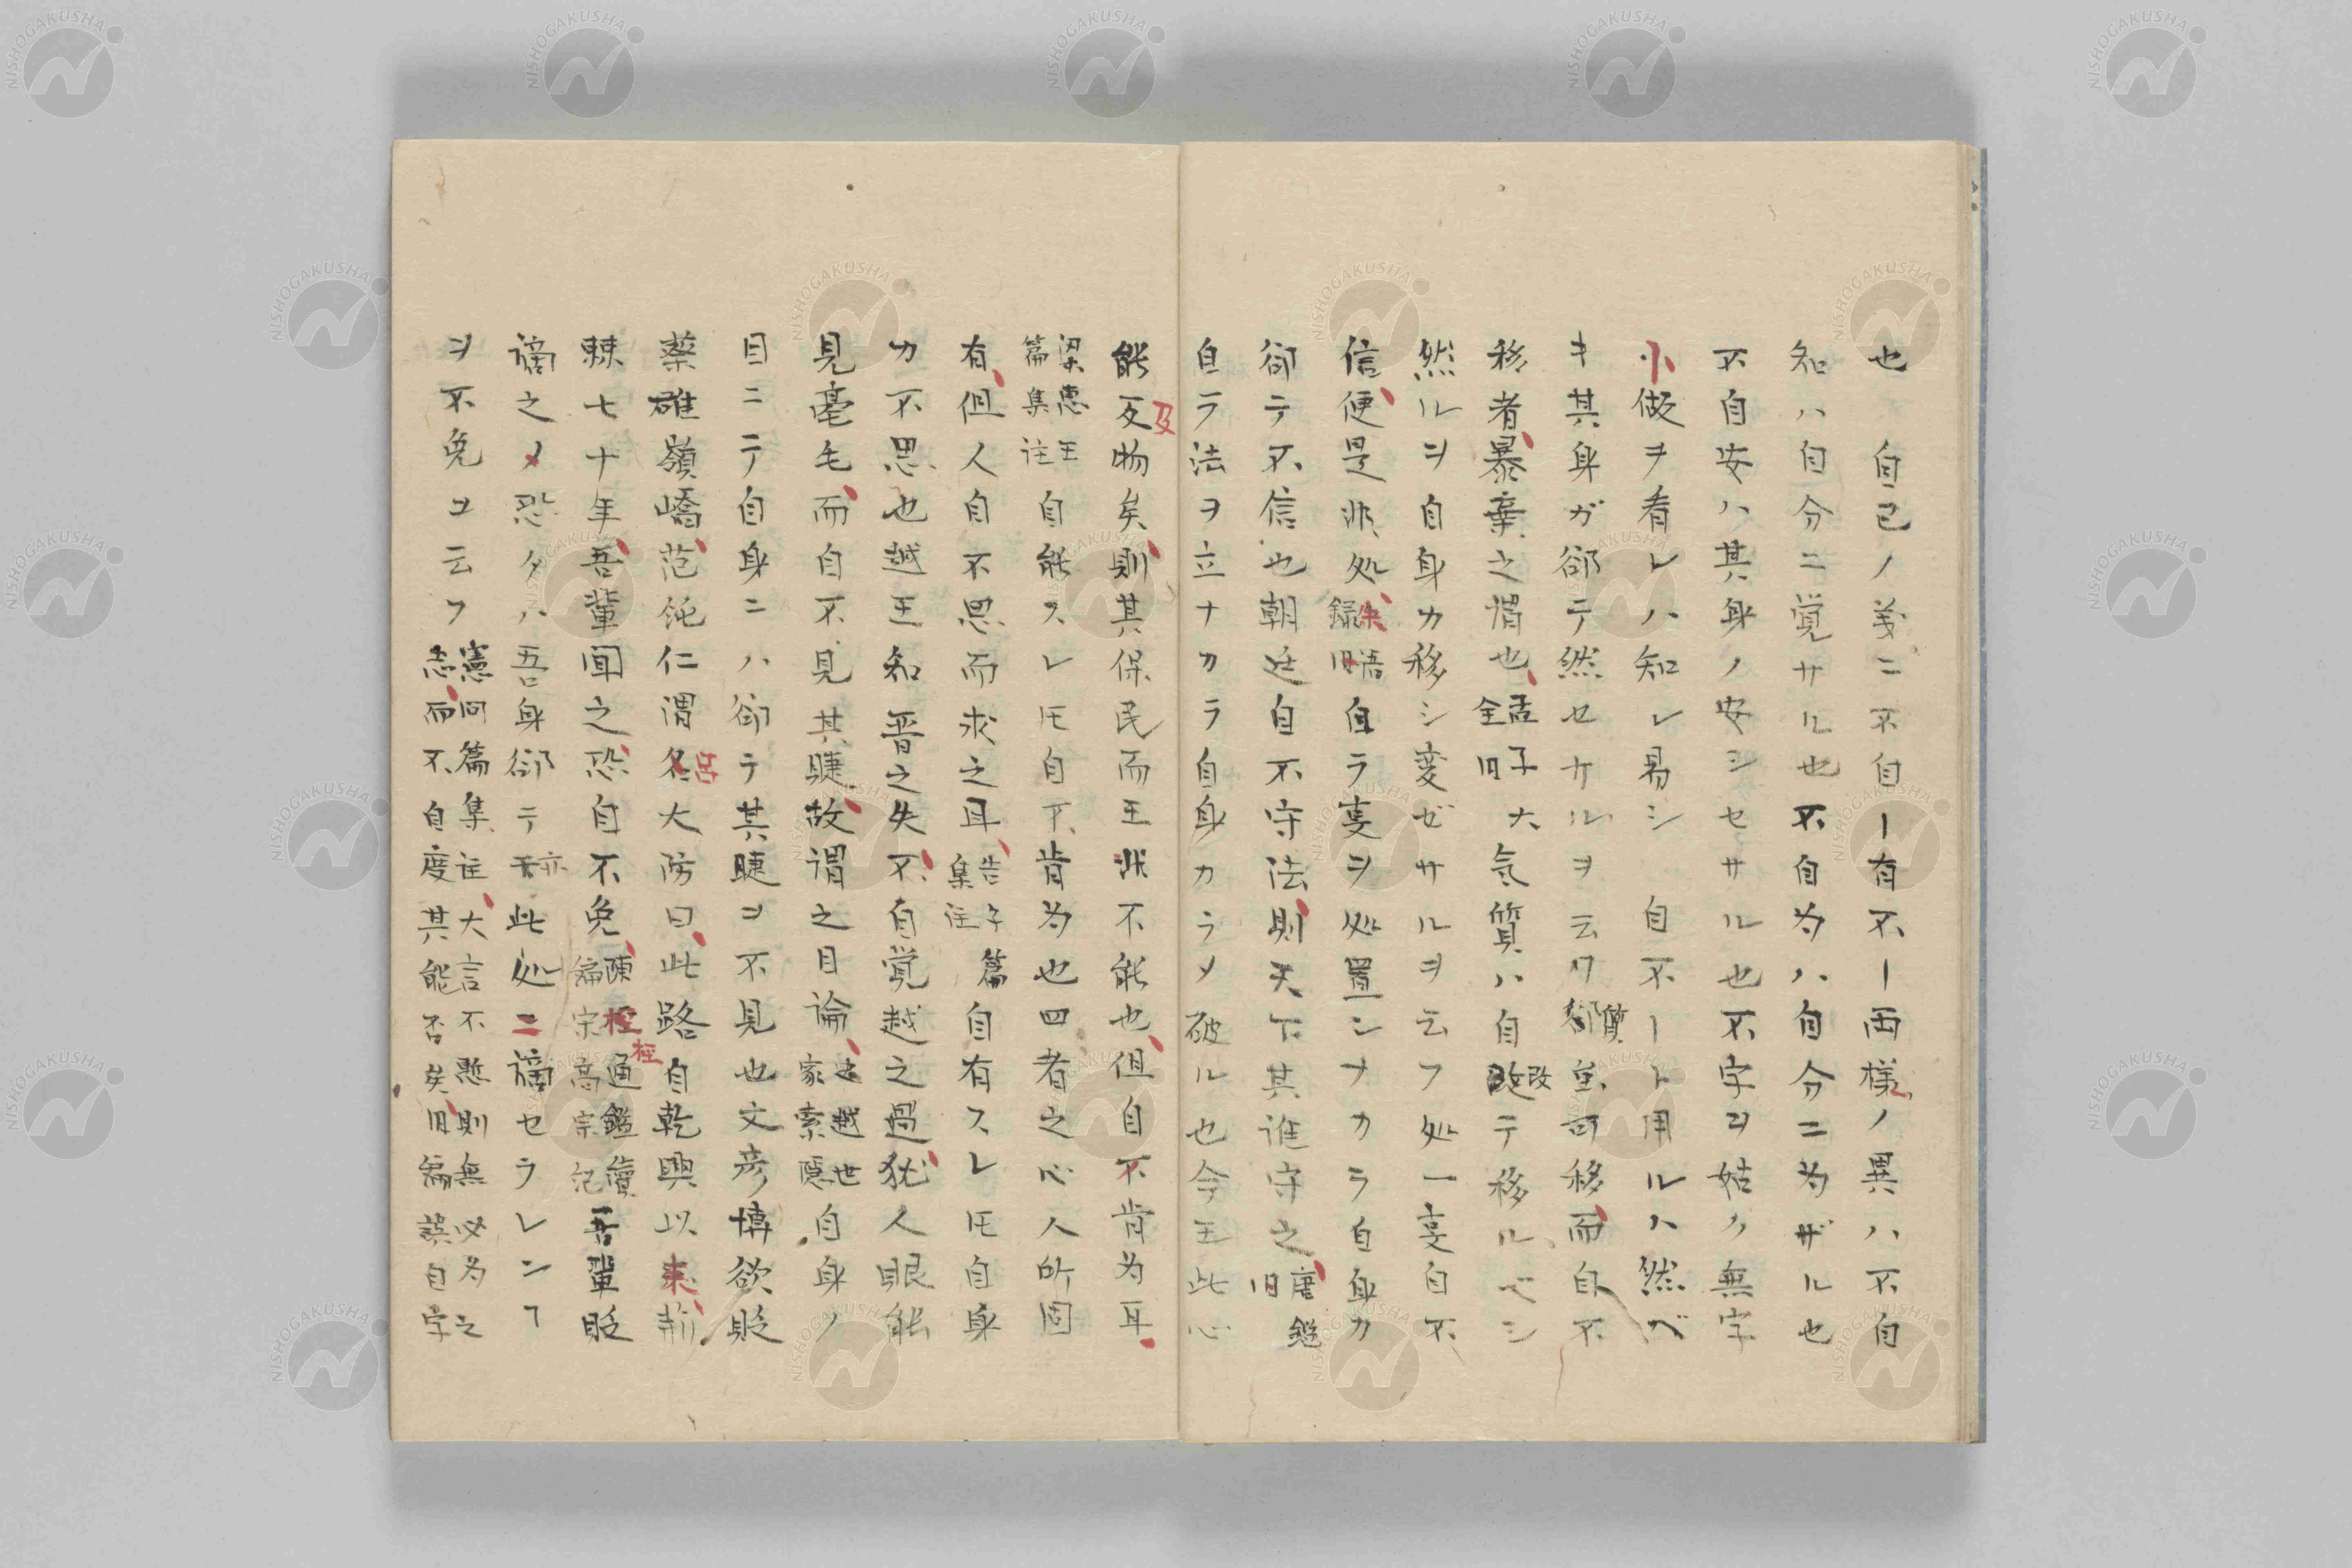 也　自己ノ義ニ不自ー有不ー両様ノ異ハ不自
知ハ自分ニ覚サル也不自為ハ自分ニ為ザル也
不自安ハ其身ノ安シセサル也不字ヲ姑ク無字
小做ヲ看レハ知レ易シ　自不ート用ルハ然ベ
キ其身ガ郤テ然セサルヲ云フ質至可移而自不
移者暴棄之謂也孟子全旧大気質ハ自改テ移ルベシ
然ルヲ自身カ移シ変ゼサルヲ云フ処一㕝自不
信便是非処朱語録旧自ラ㕝ヲ処置シナカラ自身カ
郤テ不信也朝廷自不守法則天下其誰守之唐鑑旧
自ラ法ヲ立ナカラ自身カラメ破ル也今王此心
能及物矣則其保民而王非不能也但自不肯為耳
梁恵王篇集註自能スレ𪜈自不肯為也四者之心人所固
有但人自不思而求之耳告子篇集註自有スレ𪜈自身
カ不思也越王知晋之失不自覚越之過犹人眼能
見毫毛而自不見其睫故謂之目論越世家索隠自身ノ
目ニテ自身ニハ郤テ其睫ヲ不見也文彦博欲貶
蔡確嶺嶠范純仁謂呂大防曰此路自乾興以来荊
棘七十年吾輩開之恐自不免通鑑續編宋高宗紀吾輩貶
謫之メ恐クハ吾身郤テ亦此処ニ謫セラレンヿ
ヲ不免ヿ云フ憲問篇集註大言不慙則無必為之志而不自度其能否矣旧編誤自字